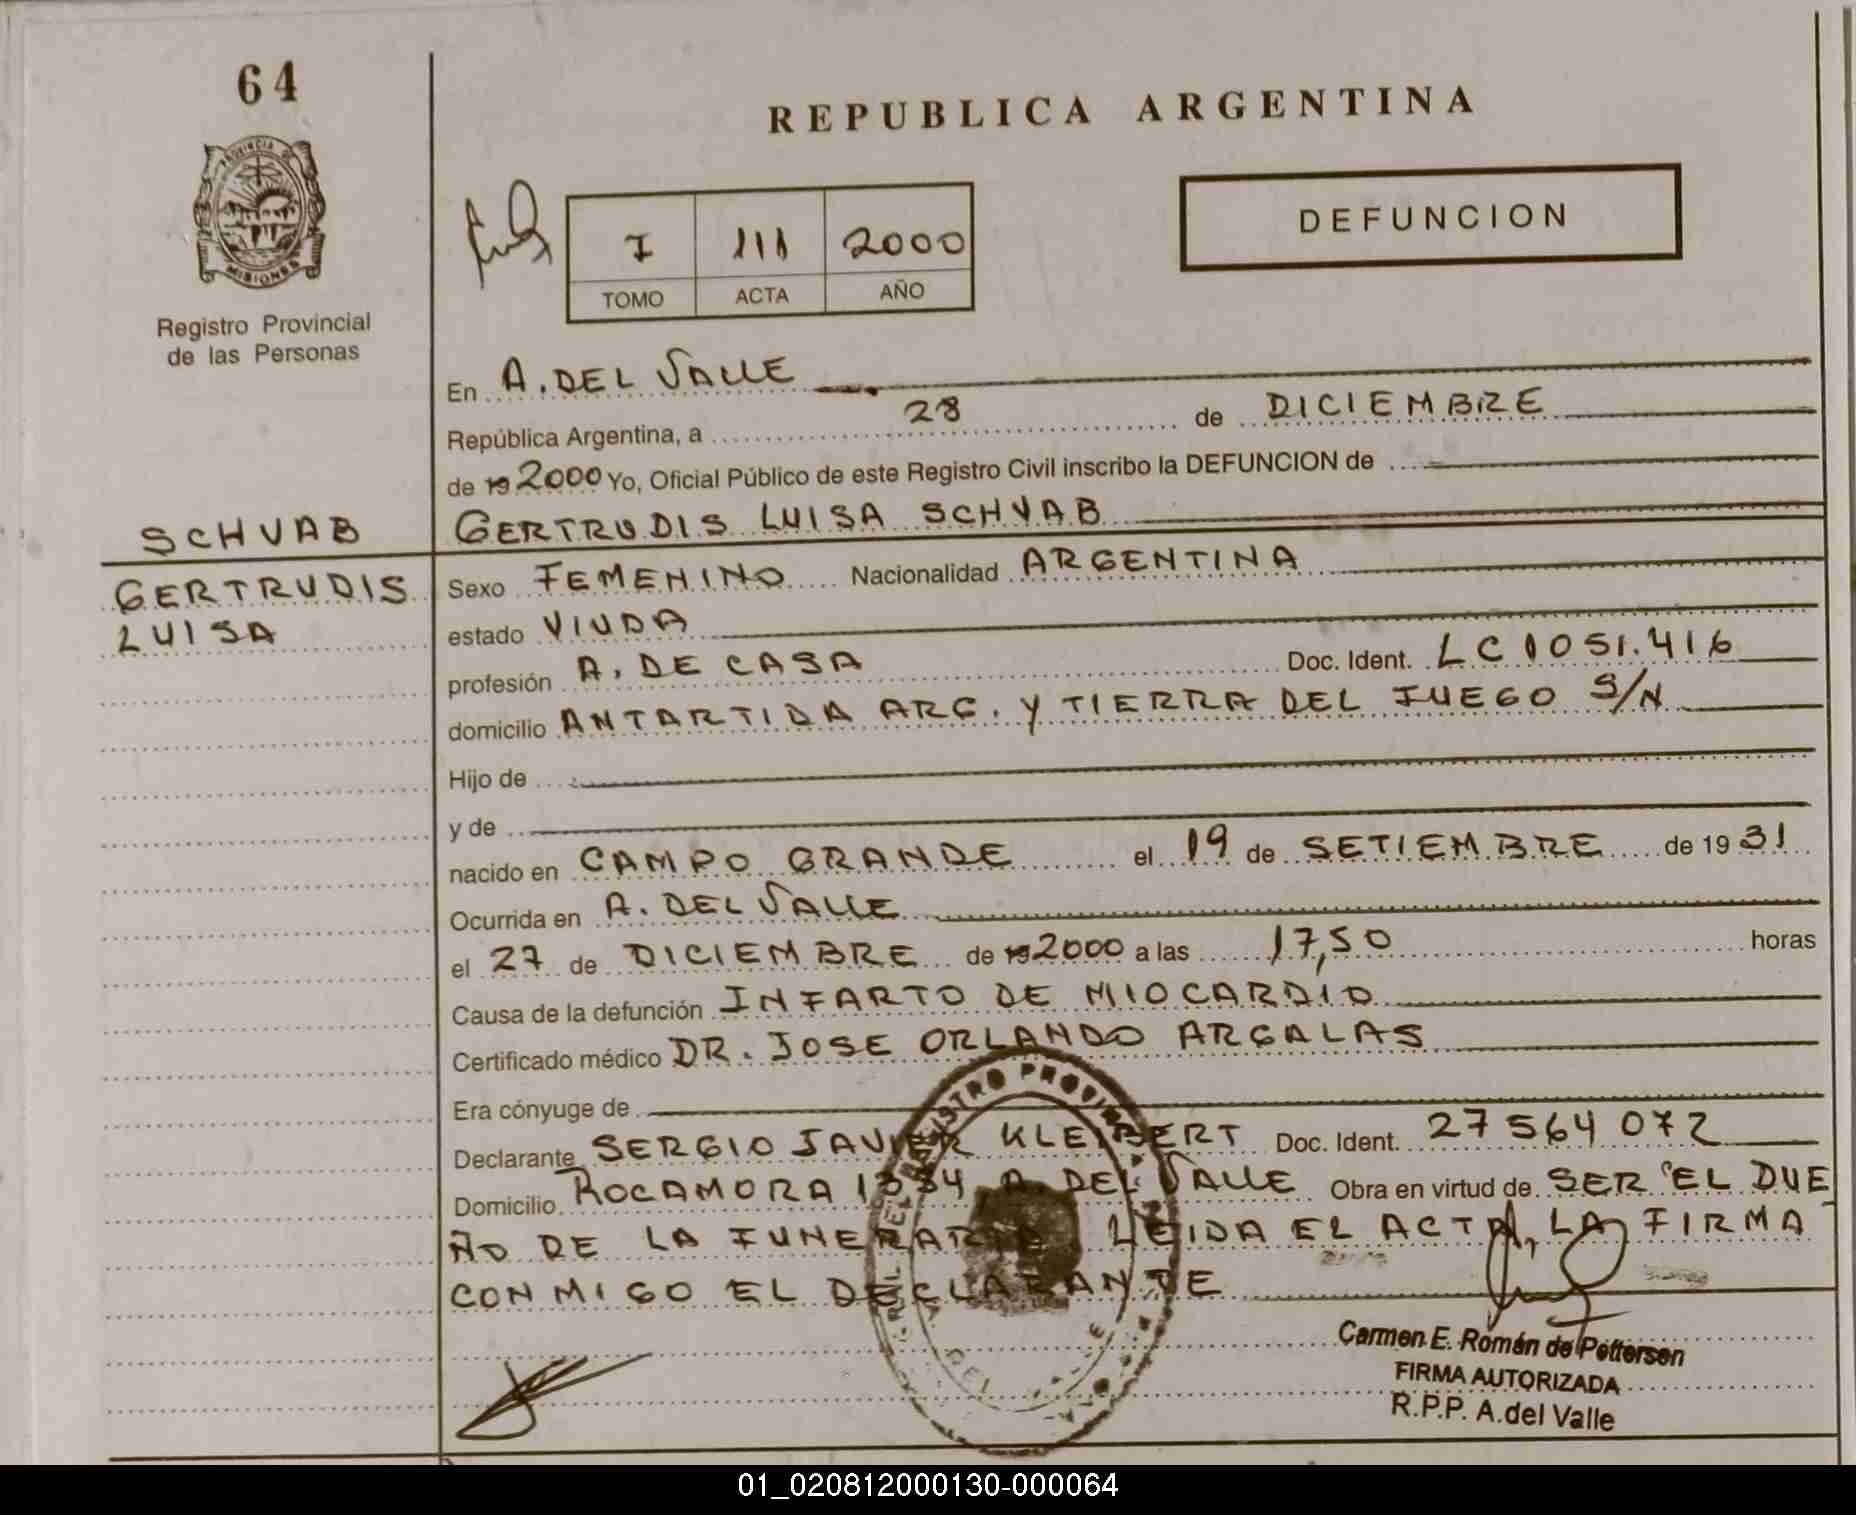 64
REPUBLICA ARGENTINA
PROVINCIA DE
MISIONES
Registro Provincial
de las Personas
I 111 2000
TOMO ACTA AÑO
DEFUNCION
En A. DEL VALLE
República Argentina, a 28 de DICIEMBRE
de 19 2000 Yo, Oficial Público de este Registro Civil inscribo la DEFUNCION de
SCHVAB
GERTRUDIS
LUISA
GERTRUDIS LUISA SCHVAB
Sexo FEMENINO Nacionalidad ARGENTINA
estado VIUDA
profesión A. DE CASA Doc. Ident. LC 1051.416
domicilio ANTARTIDA ARG. Y TIERRA DEL FUEGO S/N
Hijo de
y de
nacido en CAMPO GRANDE el 19 de SETIEMBRE de 1931
Ocurrida en A. DEL VALLE
el 27 de DICIEMBRE de 19 2000 a las 17,50 horas
Causa de la defunción INFARTO DE MIOCARDIO
Certificado médico DR. JOSE ORLANDO ARGALAS
Era cónyuge de
Declarante SERGIO JAVIER KLEIBERT Doc. Ident. 27564072
Domicilio ROCAMORA 1354 A. DEL VALLE Obra en virtud de SER EL DUE
ÑO DE LA FUNERARIA LEIDA EL ACTA, LA FIRMA
CONMIGO EL DECLARANTE
Carmen E. Román de Pettersen
FIRMA AUTORIZADA
R.P.P. A.del Valle
01_020812000130-000064